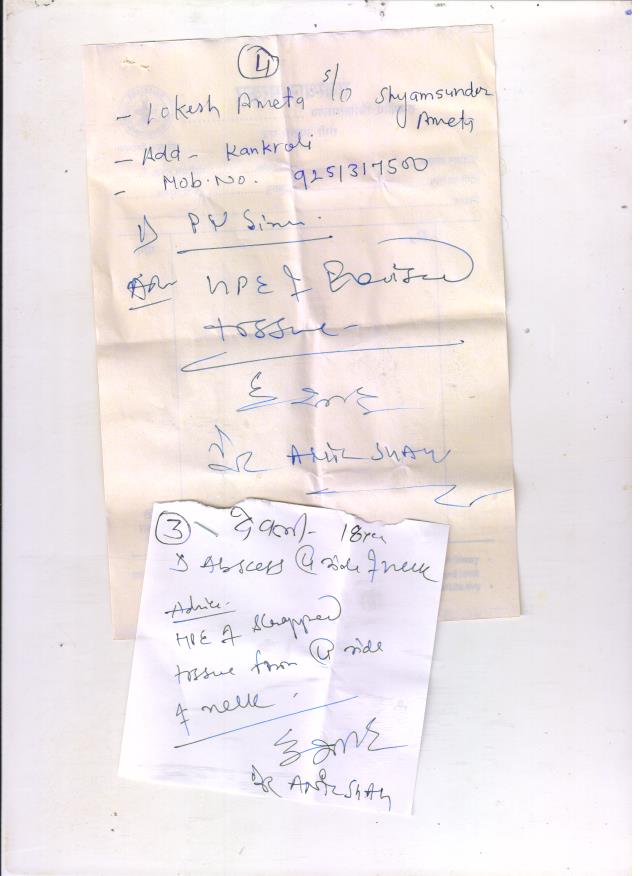 4
- Lokesh Ameta s/o Shyamsunder
Ameta
- Add - Kankroli
- Mob. No. 9251317500
D PN Sinus.
Adv HPE of Excised
tissue -
Dr ANIL SHAH
3
18yr
D Abscess side of neck
Advice -
HPE of Scrapped
tissue from side
of neck.
Dr ANIL SHAH